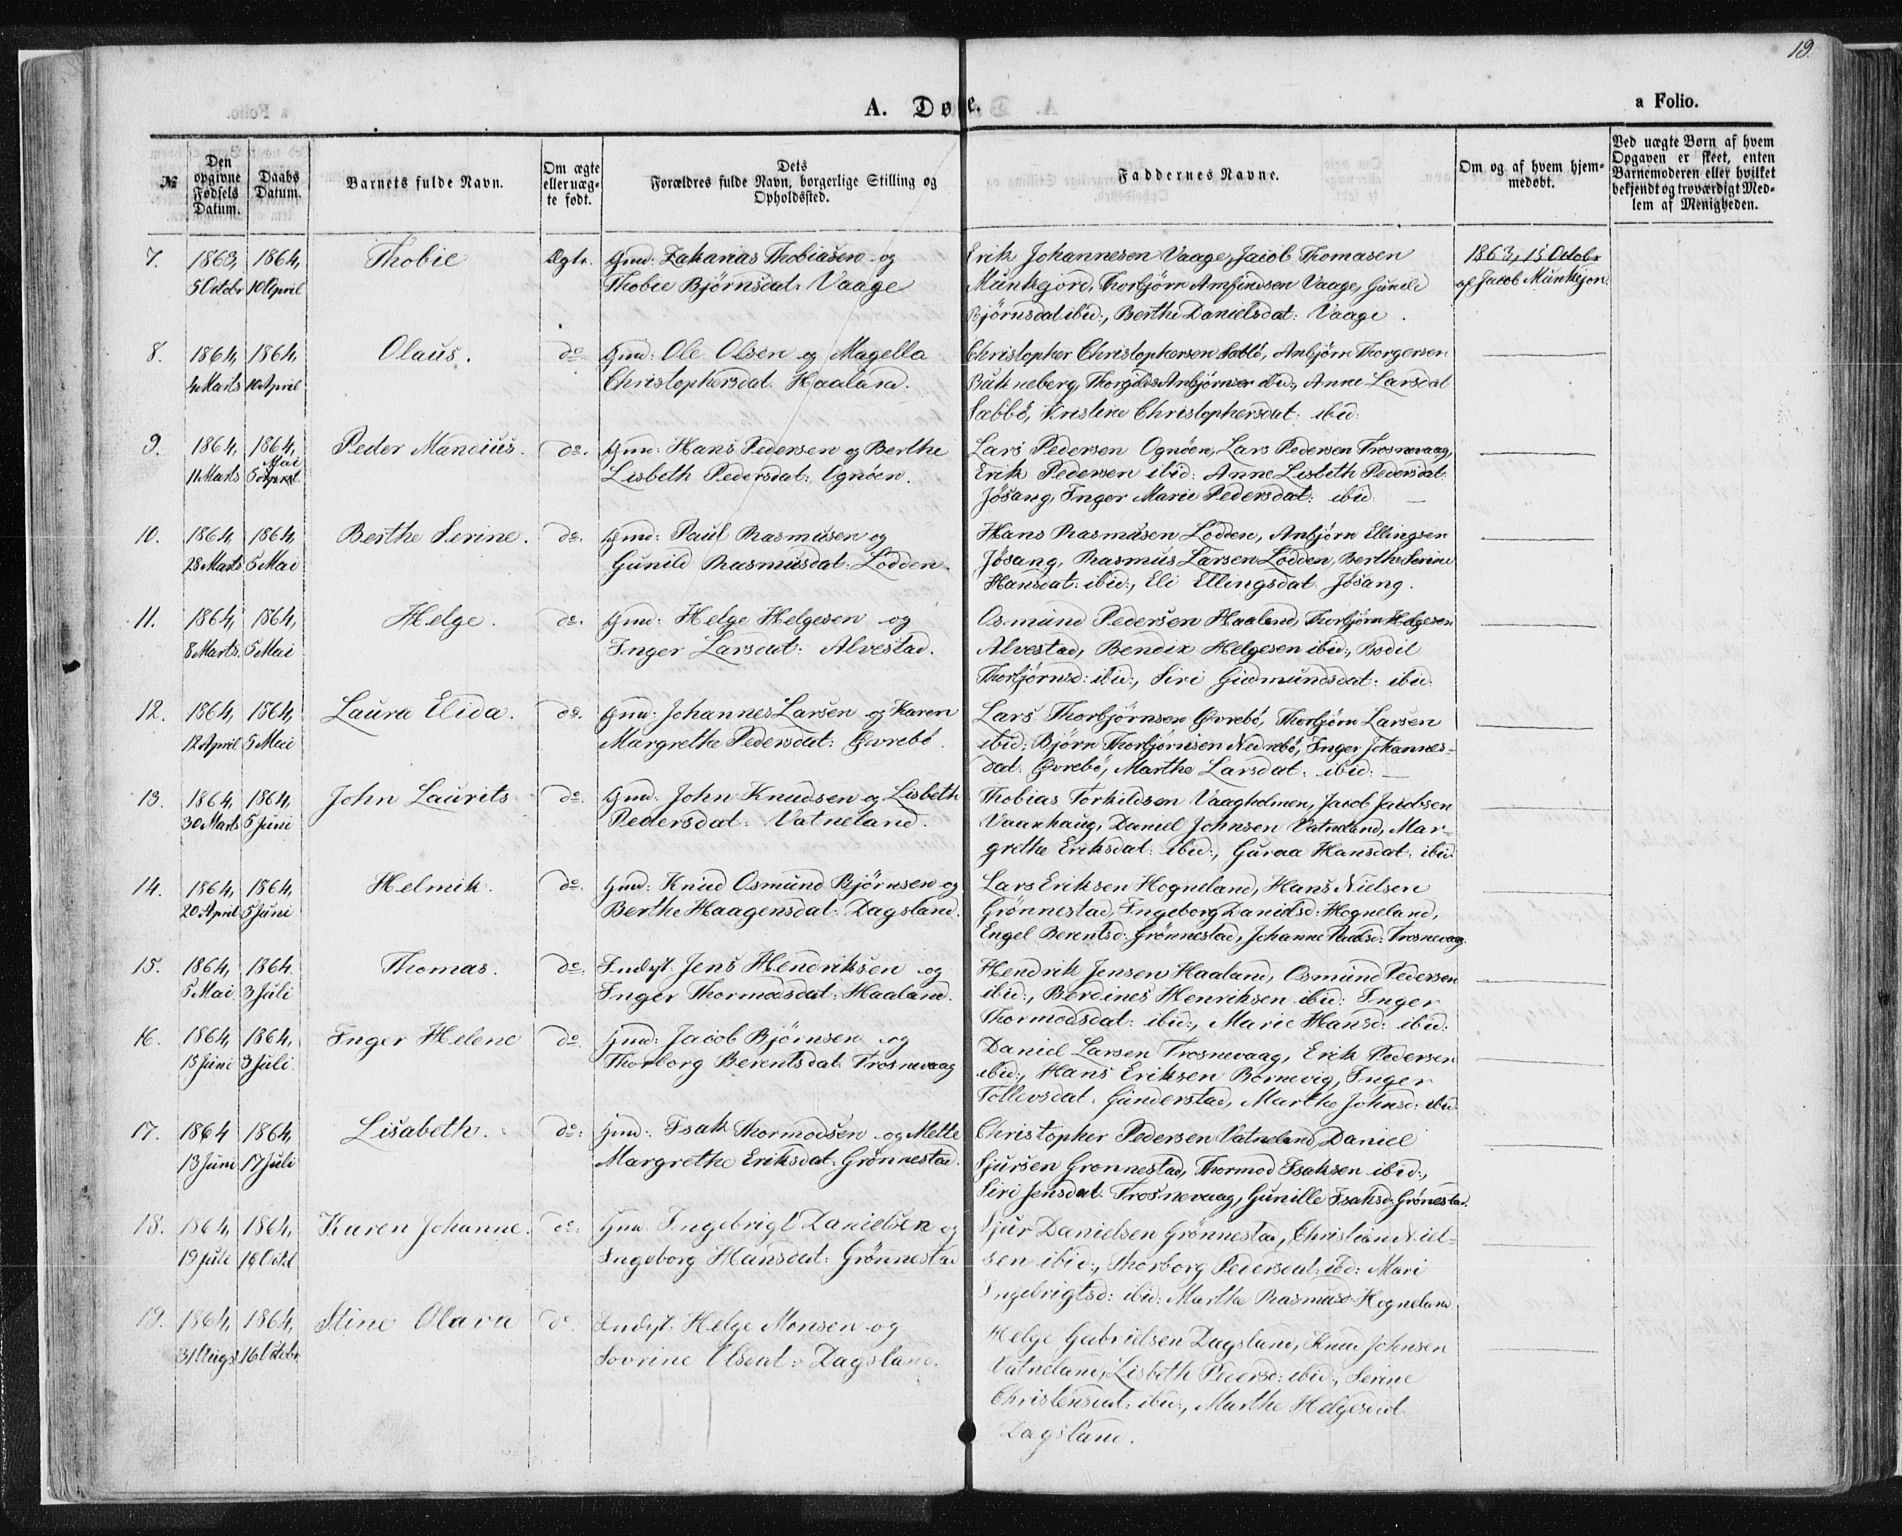 19.
A. Døbe.
a Folio.
№
Den opgivne Fødsels Datum.
Daabs Datum.
Barnets fulde Navn.
Om ægte eller uægte født.
Dets Forældres fulde Navn, borgerlige Stilling og Opholdssted.
Faddernes Navne.
Om og af hvem hjemmedøbt.
Ved uægte Børn af hvem Opgaven er skeet, enten Barnemoderen eller hvilket bekjendt og troværdigt Medlem af Menigheden.
7. 1863, 1864, Thobie Ægte. Gmd: Zakarias Thobiasen og Erik Johannesen Vaage, Jacob Thomasen 1863, 15 Octobr
5 Octobr 10 April Thobie Björnsdat: Vaage Munkejord, Thorbjörn Amfindsen Vaage, Gunild af Jacob Munkejor.
Björnsdat ibid:, Berthe Danielsdat: Vaage.
8. 1864, 1864, Olaus. do. Gmd: Ole Olsen og Magella Christopher Christophersen Sæbbö, Anbjörn Thorgersen
4 Marts 10 April Christophersdat. Haaland. Bukneberg, Anbjörnsen ibid:, Anne Larsdat
Sæbbö, Kristine Christophersdat: ibid:
9. 1864, 1864, Peder Mandius. do. Gmd: Hans Pedersen og Berthe Lars Pedersen Ognöen, Lars Pedersen Trosnevaag,
11 Marts 5 Mai April Lisbeth Pedersdat: Ognöen. Erik Pedersen ibid: Anne Lisbeth Pedersdat:
Jösang, Inger Marie Pedersdat: ibid. —
10. 1864, 1864, Berthe Serine. do. Gmd: Paul Rasmusen og Hans Rasmusen Lodden, Anbjörn Ellingsen
28 Marts 5 Mai Gunild Rasmusdat: Lodden. Jösang, Rasmus Larsen Lodden, Berthe Serine
Hansdat: ibid:, Eli Ellingsdat Jösang.
11. 1864, 1864, Helge. do. Gmd: Helge Helgesen og Osmund Pedersen Haaland, Thorbjörn Helgesen
8 Marts. 5 Mai Inger Larsdat: Alvestad. Alvestad, Bendix Helgesen ibid:, Bodil
Thorbjörnsd: ibid:, Siri Gudmundsdat: ibid:
12. 1864, 1864, Laura Elida. do. Gmd: Johannes Larsen og Karen Lars Thorbjörnsen Øvrebö, Thorbjörn Larsen
12 April 5 Mai Margrethe Pedersdat: Øvrebö. ibid: Björn Thorbjörnsen Nedrebö, Inger Johannes-
dat: Øvrebö, Marthe Larsdat: ibid: —
13. 1864, 1864, John Laurits do. Gmd: John Knudsen og Lisbeth Thobias Torkildsen Vaagholmen, Jacob Jacobsen
30 Marts 5 Juni Pedersdat: Vatneland. Vaarhaug, Daniel Johnsen Vatneland, Mar-
grethe Eriksdat: ibid:, Guraa Hansdat: ibid
14. 1864, 1864, Helmik. do. Gmd: Knud Osmund Björnsen og Lars Eriksen Hogneland, Hans Nielsen
20 April 5 Juni Berthe Haagensdat: Dagsland. Grönnestad, Ingeborg Danielsd: Hogneland,
Engel Berentsd: Grönnestad, Johanne Trosnevaag.
15. 1864, 1864. Thomas. do. Indst. Jens Hendriksen og Hendrik Jensen Haaland, Osmund Pedersen
8 Mai. 3 Juli Inger Thormodsdat: Haaland. ibid:, Berdines Henriksen ibid: Inger
Thormodsdat: ibid:, Marie Hansd: ibid:
16. 1864, 1864, Inger Helene do. Gmd: Jacob Björnsen og Daniel Larsen Trosnevaag, Erik Pedersen
13 Juni 3 Juli. Thorborg Berentsdat: Trosnevaag ibid:, Hans Eriksen Bornevig, Inger
Tollevsdat. Gunderstad, Marthe Johnsd: ibid
17. 1864 1864, Lisabeth. do: Gmd: Isak Thormodsen og Mette Christopher Pedersen Vatneland, Daniel
13 Juni 17 Juli Margrethe Eriksdat: Grönnestad. Sjursen Grönnestad, Thormod Isaksen ibid:,
Siri Jensdat: Trosnevaag, Gunille Isaksd: Grönestad.
18. 1864, 1864, Karen Johanne. do: Gmd. Ingebrigt Danielsen og Sjur Danielsen Grönnestad, Christian Niel-
19 Juli 16 Octbl Ingeborg Hansdat: Grönnestad sen ibid:, Thorborg Pedersdat: ibd: Mari
Ingebrigtsd: ibid: Marthe Rasmusd Hogneland
19. 1864, 1864, Stine Olava do. Indst. Helge Monsen og Helge Gabrielsen Dagsland, Knud Johnsen
31 Augs 16 Octobr Sovrine Olsdat: Dagsland. Vatneland, Lisbeth Pedersd: ibid:, Serine
Christensdat: ibid:, Marthe Helgesdat
Dagsland.